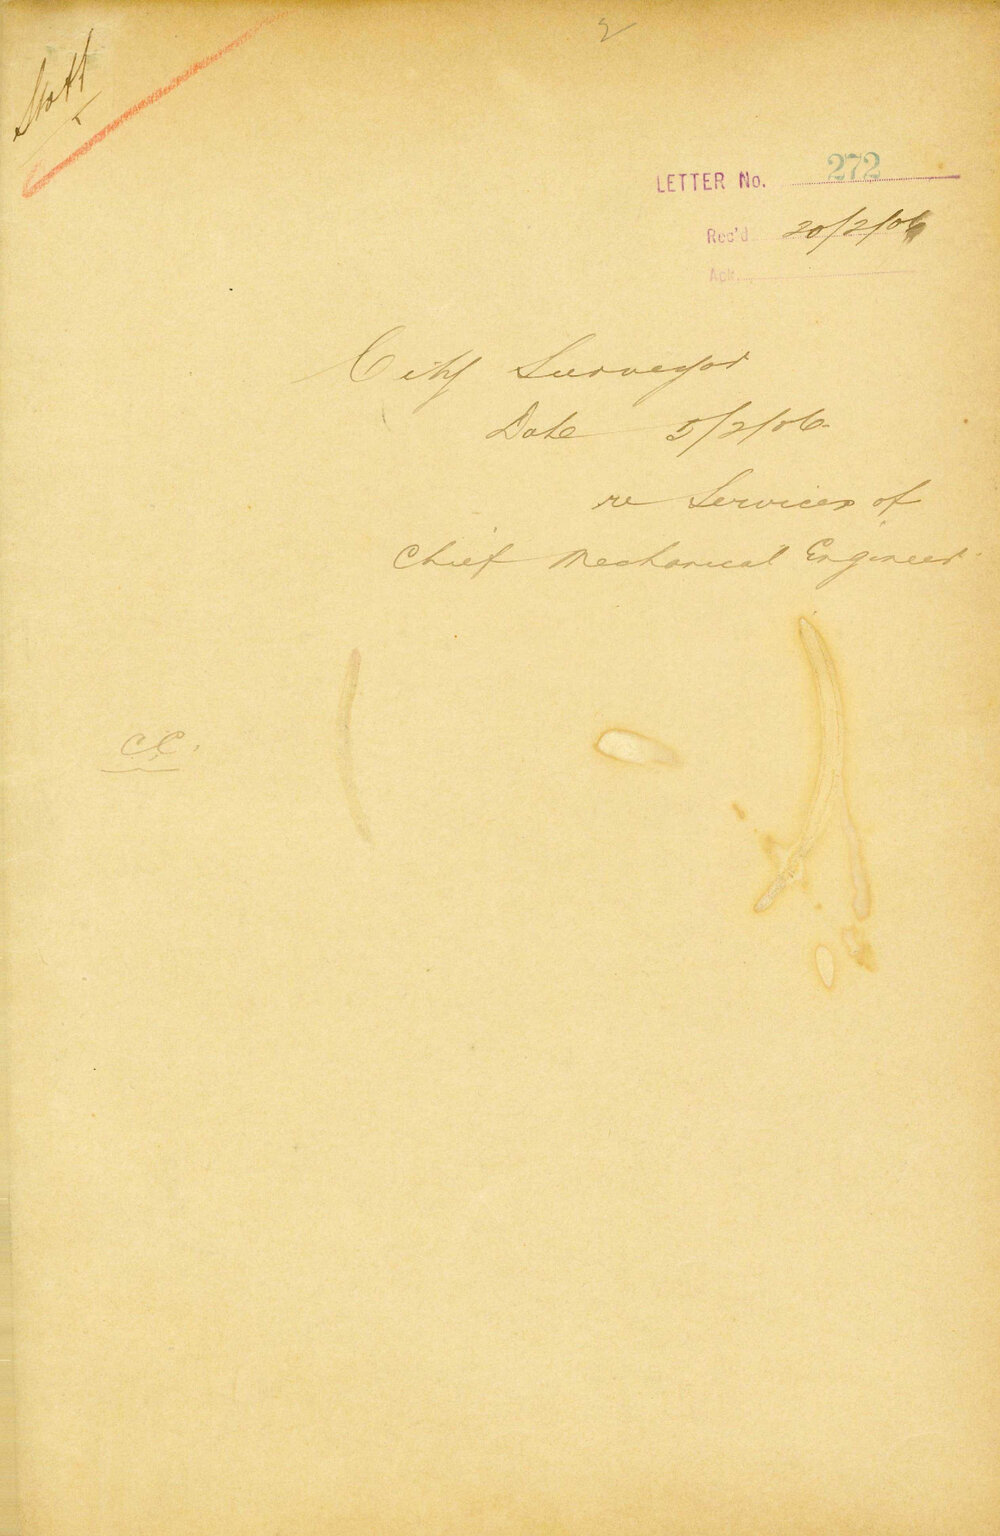 2
Staff
LETTER No. 272
Rec'd 20/2/06
Ack.
City Surveyor
Date 5/2/06
re Services of
Chief Mechanical Engineer
C.C.